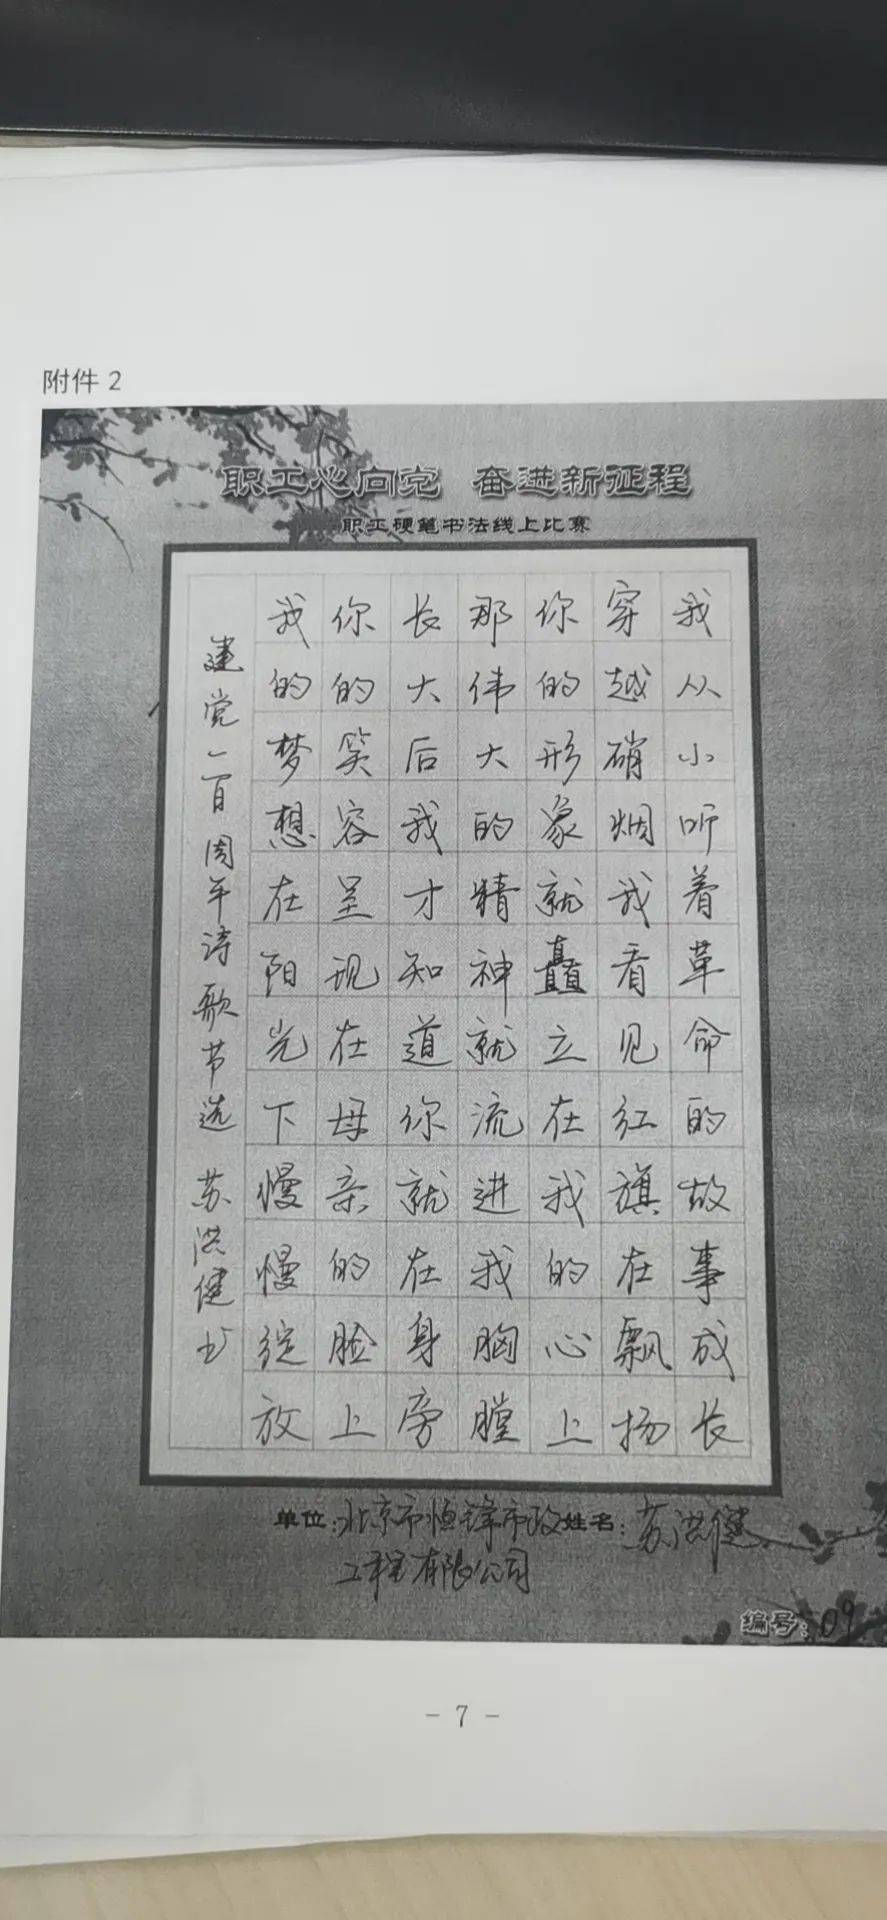 附件 2
职工心向党 奋进新征程
职工硬笔书法线上比赛
我从小听着革命的故事成长
穿越硝烟我看见红旗在飘扬
你的形象就矗立在我的心上
那伟大的精神就流进我胸膛
长大后我才知道你就在身旁
你的笑容呈现在母亲的脸上
我的梦想在阳光下慢慢绽放
建党一百周年诗歌节选 苏洪健书
单位:北京市恒锋市政姓名:苏洪健
工程有限公司
编号:09
- 7 -